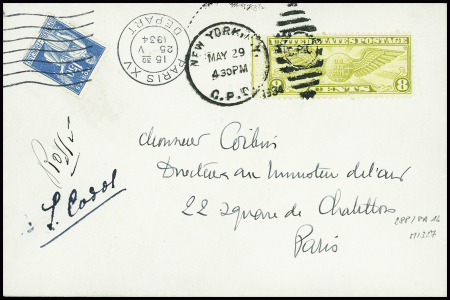 PARIS XV
15 30
25
V
1934
DEPART
NEW YORK, N.Y.
MAY 29
4 30 PM
1934
G.P.O.
UNITED STATES POSTAGE
8 CENTS 8
1F50
Rossi
Codos
Monsieur Corbin
Directeur au Ministère de l'air
22 square de Chatillon
Paris
288 / PA 16
M1327